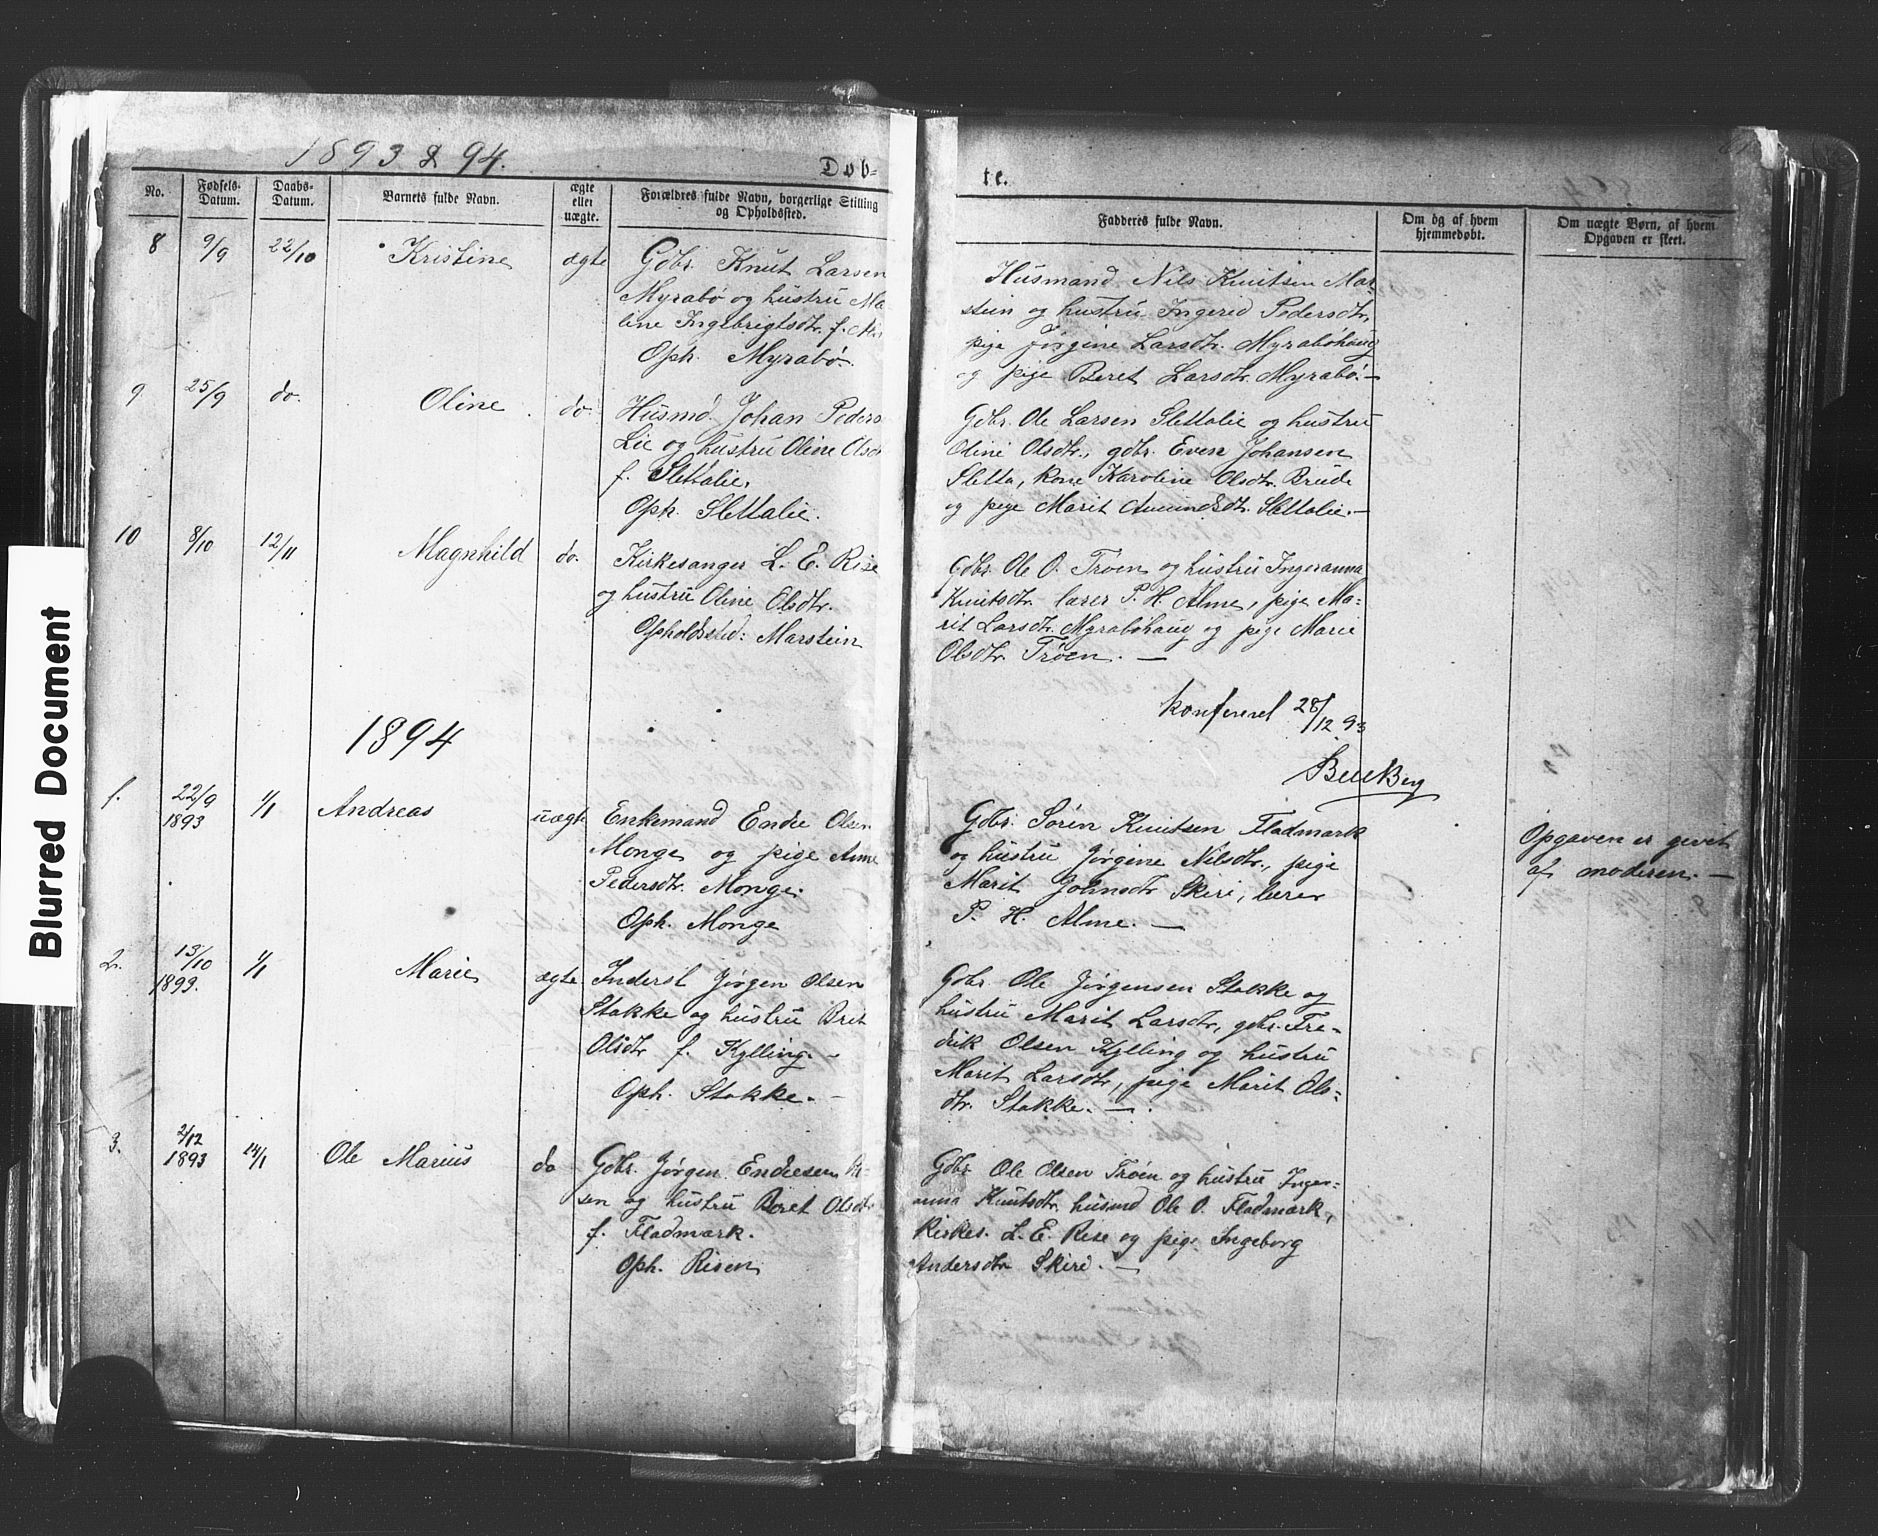 1893 & 94.
Døb=
te.
No.
Fødsels-
Datum.
Daabs-
Datum.
Barnets fulde Navn.
ægte
eller
uægte.
Forældres fulde Navn, borgerlige Stilling
og Opholdssted.
Fadderes fulde Navn.
Om og af hvem
hjemmedøbt.
Om uægte Børn, af hvem
Opgaven er skeet.
8 9/9 22/10 Kristine ægte
Gdbr. Knut Larsen
Myrabø og hustru Ma
line Ingebrigtsdtr. f.
Oph. Myrabø.
Husmand Nils Knutsen Mar-
stein og hustru Ingerid Pedersdtr,
pige Jørgine Larsdtr. Myrabøhaug
og pige Beret Larsdtr. Myrabø.—
9 25/9 do. Oline do.
Husmd. Johan Peders
Lie og hustru Oline Olsd
f. Slettalie.
Oph. Slettalie.
Gdbr. Ole Larsen Slettalie og hustru
Oline Olsdtr., gdbr. Even Johansen
Sletta, kone Karoline Olsdtr. Brude
og pige Marit Amundsdtr. Slettalie.—
10 8/10 12/11 Magnhild do.
Kirkesanger L. E. Rise
og hustru Oline Olsdtr.
Opholdssted: Marstein
Gdbr. Ole O. Trøen og hustru Ingeranna
Knutsdtr. lærer P. H. Alme, pige Ma-
rit Larsdtr. Myrabøhaug og pige Marie
Olsdtr. Trøen. —
konfereret 28/12 93
1894
1. 22/9 1893 1/1 Andreas uægte
Enkemand Endre Olsen
Monge og pige Anne
Pedersdtr. Monge.
Oph. Monge
Gdbr. Søren Knutsen Fladmark
og hustru Jørgine Nilsdtr., pige
Marit Johnsdtr Skiri, lærer
P. H. Alme. —
Opgaven er givet
af moderen. —
2. 13/10 1893. 1/1 Marie ægte
Inderst Jørgen Olsen
Stokke og hustru Bret
Olsdtr f. Kylling. -
Oph. Stokke. -
Gdbr. Ole Jørgensen Stokke og
hustru Marit Larsdtr, gdbr. Fre-
drik Olsen Kylling og hustru
Marit Larsdtr, pige Marit Ols-
dtr. Stokke. —.
3. 2/12 1893 14/1 Ole Marius do
Gdbr. Jørgen Endresen Ri-
sen og hustru Beret Olsdtr
f. Fladmark.
Oph. Risen
Gdbr. Ole Olsen Trøen og hustru Inger-
anna Knutsdtr, husmd Ole O. Fladmark,
Kirkes. L. E. Rise og pige Ingeborg
Andersdtr Skiri. —
Blurred Document